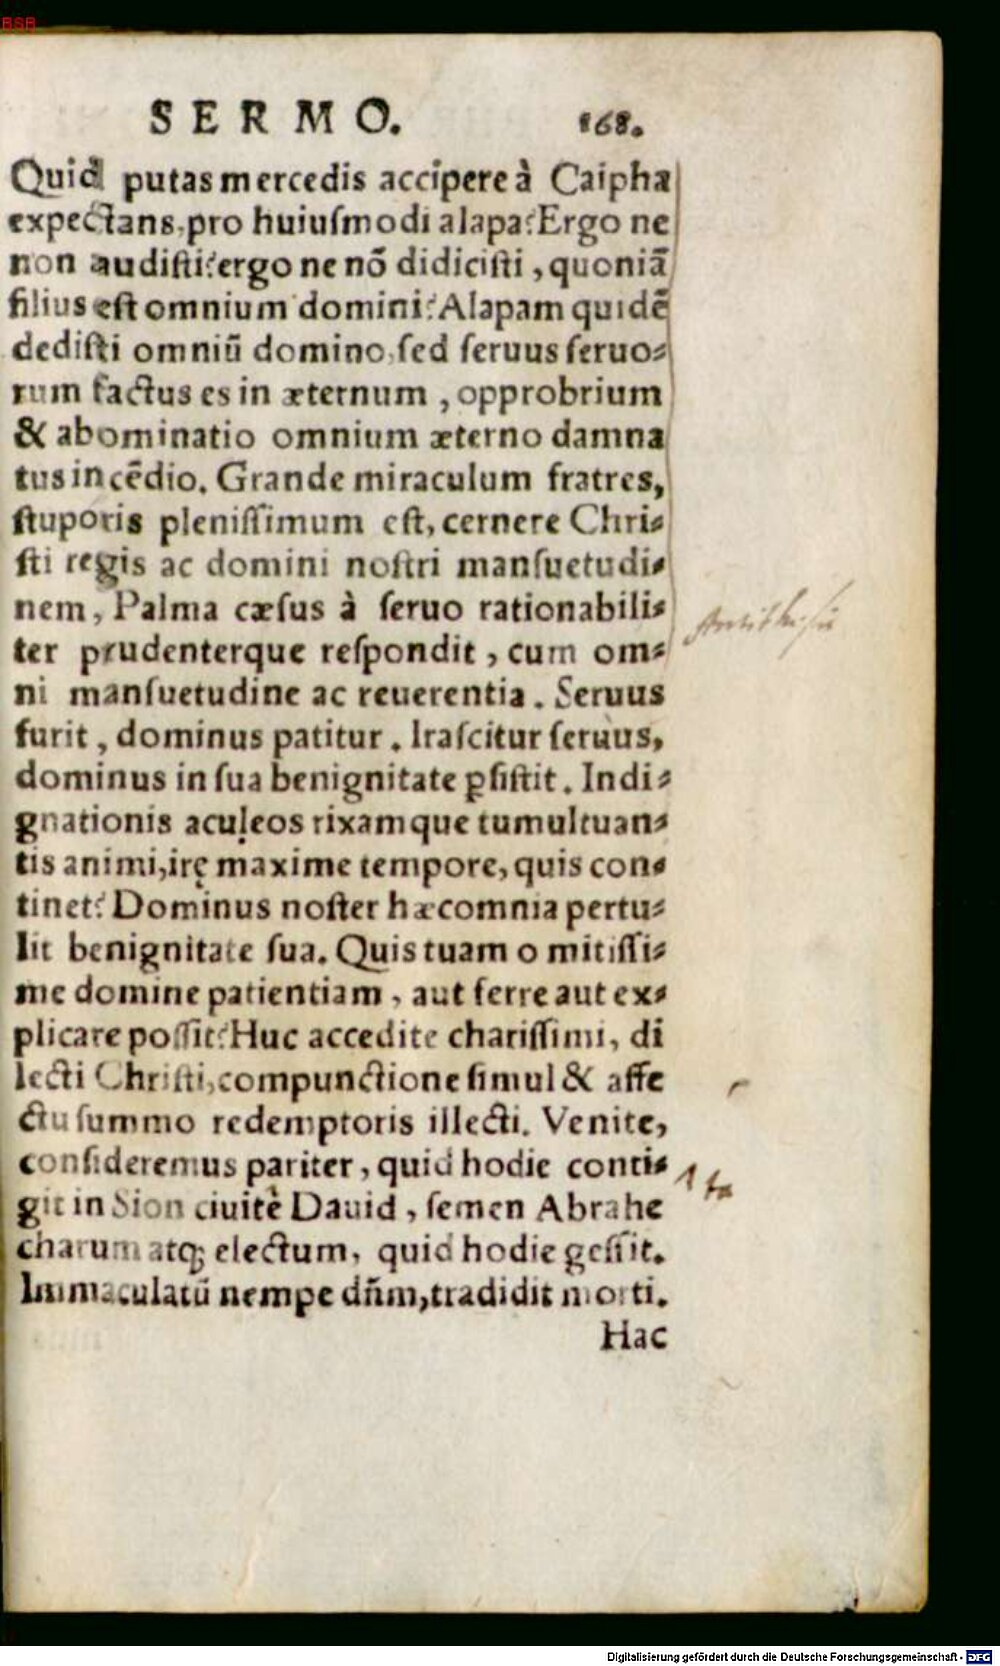 BSB
SERMO. 168.
Quid putas mercedis accipere à Caipha
expectans, pro huiusmodi alapa? Ergo ne
non audisti? ergo ne nõ didicisti, quoniã
filius est omnium domini? Alapam quidẽ
dedisti omniũ domino, sed seruus seruo-
rum factus es in æternum, opprobrium
& abominatio omnium æterno damna
tus incẽdio. Grande miraculum fratres,
stuporis plenissimum est, cernere Chri-
sti regis ac domini nostri mansuetudi-
nem, Palma cæsus à seruo rationabili-
ter prudenterque respondit, cum om-
ni mansuetudine ac reuerentia. Seruus
furit, dominus patitur. Irascitur seruus,
dominus in sua benignitate ꝑsistit. Indi-
gnationis aculeos rixamque tumultuan-
tis animi, irę maxime tempore, quis con-
tinet? Dominus noster hæc omnia pertu-
lit benignitate sua. Quis tuam o mitissi-
me domine patientiam, aut ferre aut ex-
plicare possit? Huc accedite charissimi, di
lecti Christi, compunctione simul & affe
ctu summo redemptoris illecti. Venite,
consideremus pariter, quid hodie conti-
git in Sion ciuitẽ Dauid, semen Abrahe
charum atq; electum, quid hodie gessit.
Immaculatũ nempe dñm, tradidit morti.
Hac
Digitalisierung gefördert durch die Deutsche Forschungsgemeinschaft - DFG